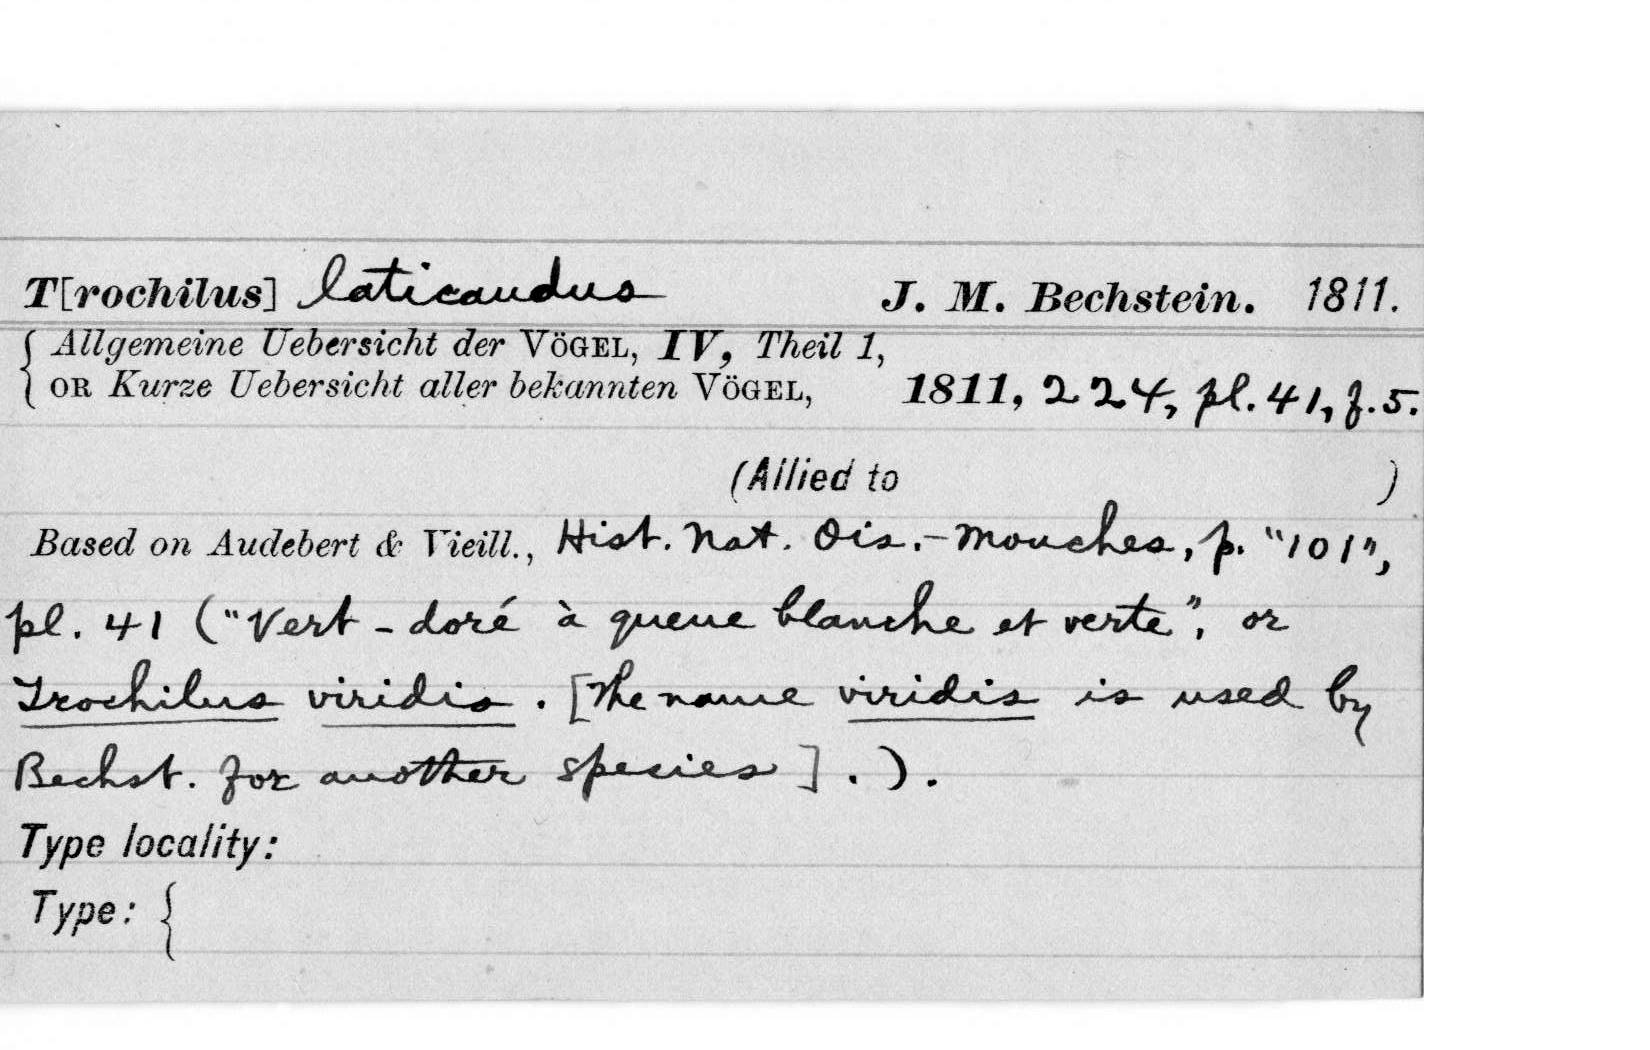 T[rochilus] laticaudus J. M. Bechstein. 1811.
{ Allgemeine Uebersicht der VÖGEL, IV, Theil 1,
OR Kurze Uebersicht aller bekannten VÖGEL, 1811, 224, pl. 41, f. 5.
(Allied to )
Based on Audebert & Vieill., Hist. Nat. Ois.-Mouches, p. "101",
pl. 41 ("Vert-doré à queue blanche et verte", or
Trochilus viridis. [The name viridis is used by
Bechst. for another species].).
Type locality:
Type: {